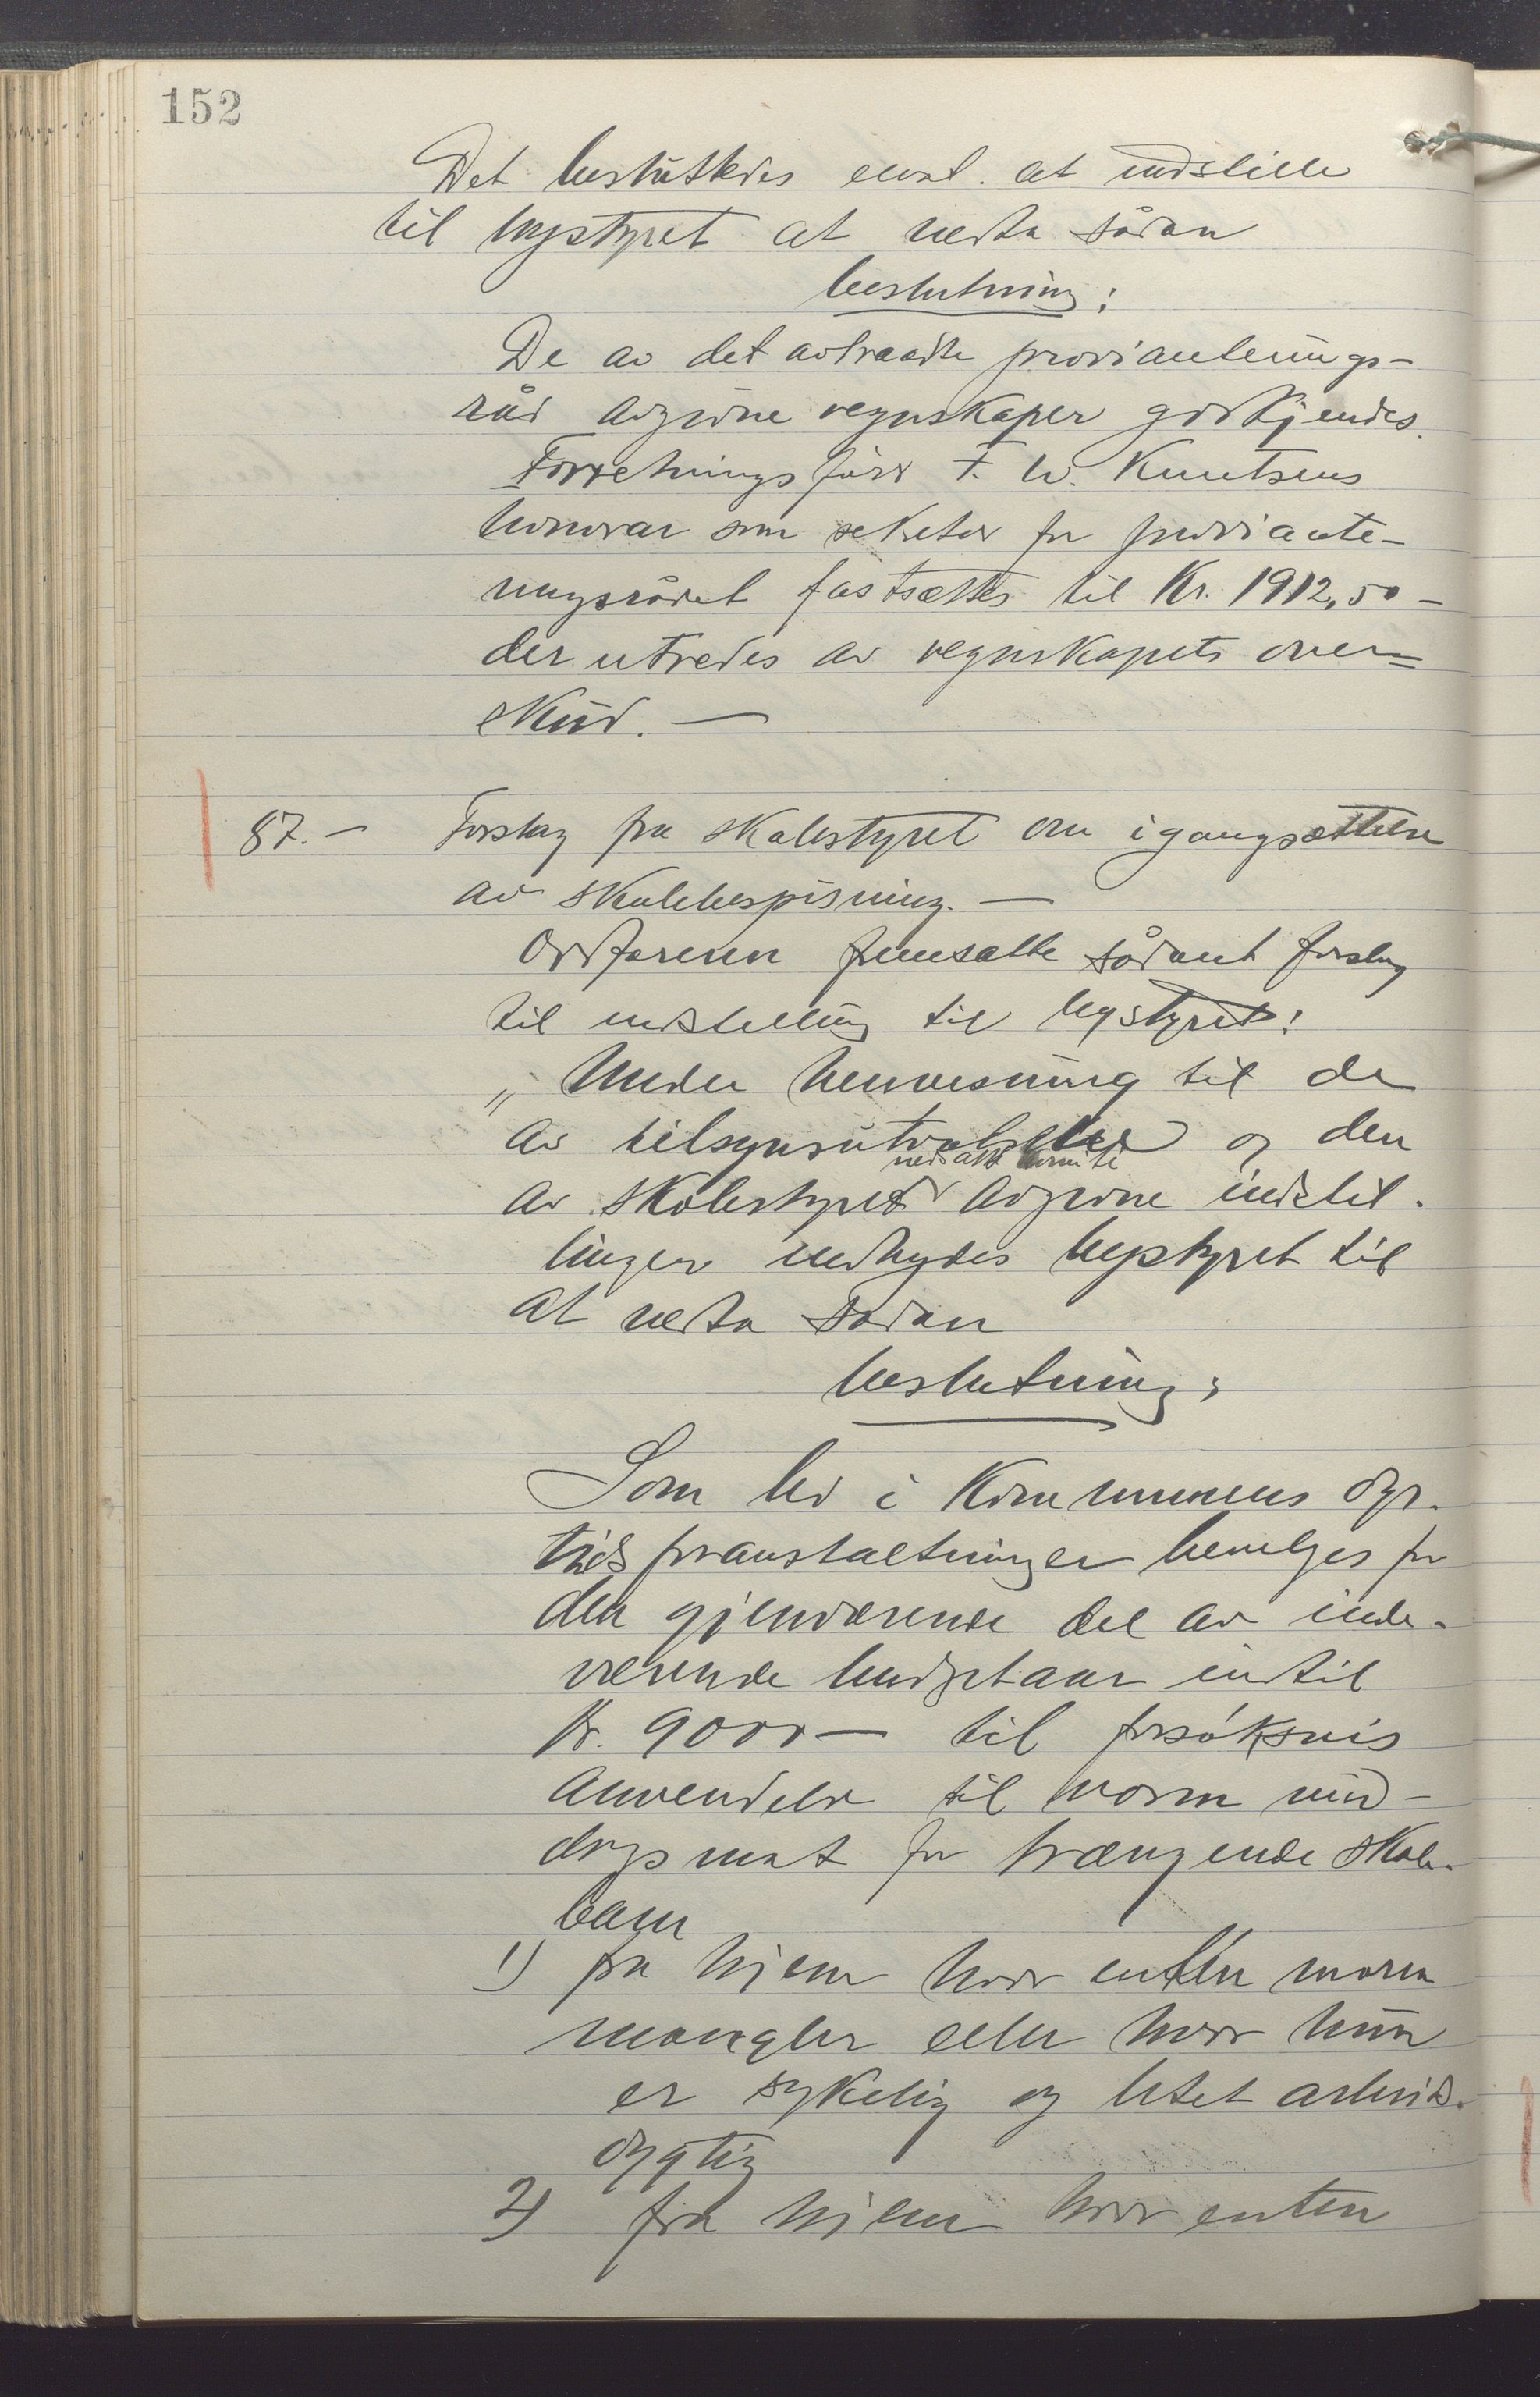 152
Det besluttedes enst. at indstille
til bystyret at vedta sådan
beslutning:
De av det avtraadte provianterings-
råd avgivne regnskaper godkjendes.
Forretningsförer F. W. Knutsens
honorar som sekretær for proviante-
ringsrådet fastsættes til Kr. 1912,50 -
der utredes av regnskapets over=
skud. —
87. - Forslag fra skolestyret om igangsættelse
av skolebespisning. —
Ordføreren fremsatte sådant forslag
til indstilling til bystyret:
„Under henvisning til de
av tilsynsutvalgene og den
nedsatt komite
av skolestyret avgivne indstil-
linger indbydes bystyret til
at vedta sådan
beslutning:
Som led i kommunens dyr-
tidsforanstaltninger bevilges for
den gjenværende del av inde-
værende budgetaar indtil
Kr. 9000 — til forsöksvis
anvendelse til varm mid-
dagsmat for trængende skole-
barn
1) fra hjem hvor enten moren
mangler eller hvor hun
er sykelig og litet arbeids-
dygtig
2) fra hjem hvor enten